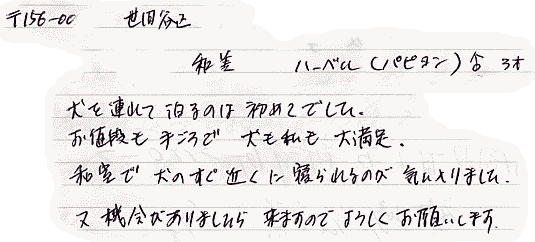 〒156-00 世田谷区
和室 ハーベル(パピヨン)♂ 3才
犬を連れて泊るのは初めてでした。
お値段も手ごろで 犬も私も大満足。
和室で犬のすぐ近くに寝られるのが気に入りました。
又機会がありましたら来ますのでよろしくお願いします。